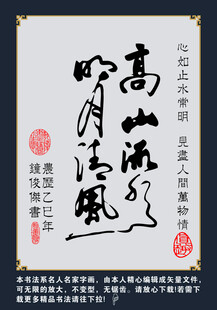 心如止水常明 見盡人間萬物情
高山流水
明月清風
農歷乙巳年
鐘俊傑書
本书法系名人名家字画,由本人精心编辑成矢量文件,
可无限的放大,不变型,无锯齿。请放心下载!若需下
载更多精品书法请往下拉!